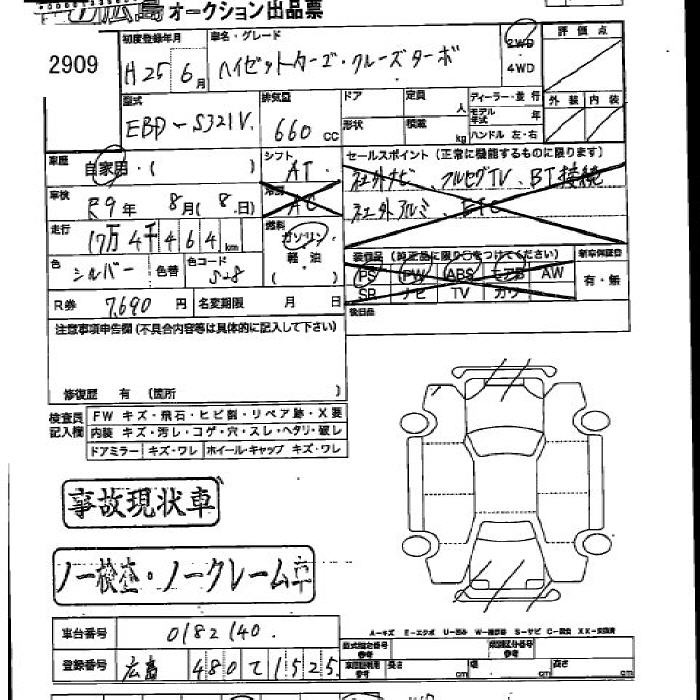 広島 オークション出品票
2909
初度登録年月 車名・グレード 2WD 評価点
H25 6月 ハイゼットカーゴ・クルーズターボ 4WD
型式 排気量 ドア 定員 人 ディーラー・並行 外装 内装
EBD-S321V 660 cc 形状 積載 kg モデル年式 年
ハンドル 左・右
車歴 自家用・( ) シフト AT セールスポイント (正常に機能するものに限ります)
車検 R9年 8月(8日) 冷房 AC 社外ナビ、フルセグTV、BT接続
社外アルミ、ETC
走行 17万4千464km 燃料 ガソリン
軽油
( )
装備品 (純正品に限り○をつけてください) 新車保証書
PS PW ABS エアB AW 有・無
SR ナビ TV カワ
色 シルバー 色替 色コード S28
R券 7,690円 名変期限 月 日 後日品
注意事項申告欄 (不具合内容等は具体的に記入して下さい)
修復歴 有 (箇所 )
検査員記入欄 FW キズ・飛石・ヒビ割・リペア跡・X要
内装 キズ・汚レ・コゲ・穴・スレ・ヘタリ・破レ
ドアミラー キズ・ワレ ホイール・キャップ キズ・ワレ
事故現状車
ノー検査・ノークレーム車
A-キズ E-エクボ U-凹み W-補修跡 S-サビ C-腐食 XX-交換済
車台番号 0182140. 型式指定番号 参考 類別区分番号 参考
登録番号 広島 480 て 1525 長さ cm 幅 cm 高さ cm